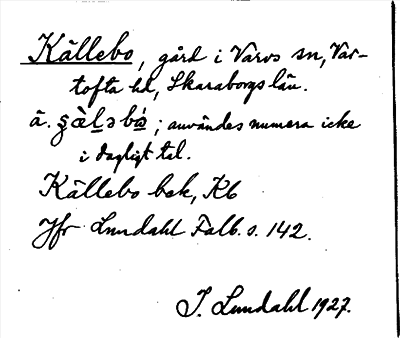 Källebo, gård i Varvs sn, Var-
tofta hd, Skaraborgs län.
ä. ; användes numera icke
i dagligt tal.
Källebo bek, Kb
Jfr Lundahl Falb. s. 142.
I. Lundahl 1927.